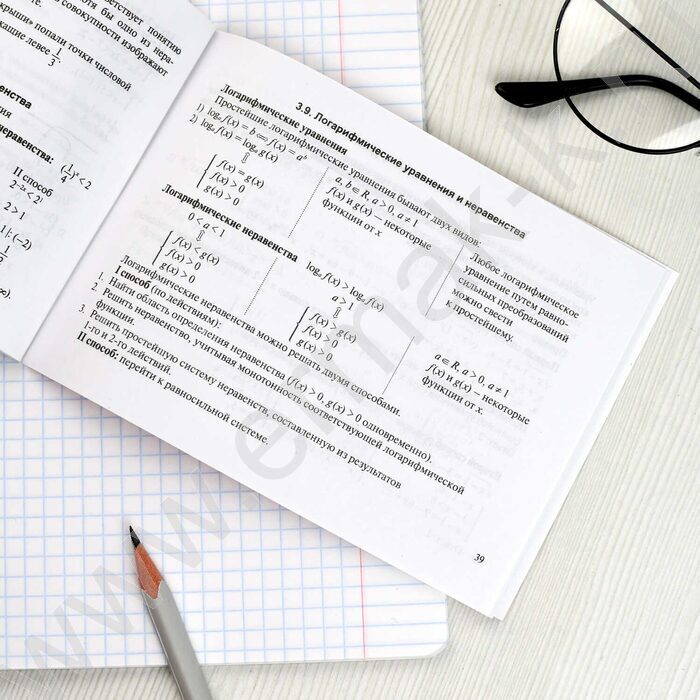 ответствует понятию
хотя бы одно из нера-
совокупности изображают
крыши» попали точки числовой
жащие левее 1/3.
венства
неравенства:
(1/4)ˣ < 2
II способ
2⁻²ˣ < 2¹
2 > 1
|:(−2)
3.9. Логарифмические уравнения и неравенства
Логарифмические уравнения
Простейшие логарифмические уравнения бывают двух видов:
1) logₐ f(x) = b ⇔ f(x) = aᵇ
2) logₐ f(x) = logₐ g(x)
⇕
{ f(x) = g(x)
f(x) > 0
g(x) > 0
a, b ∈ R, a > 0, a ≠ 1
f(x) и g(x) – некоторые
функции от x
Любое логарифмическое
уравнение путем равно-
сильных преобразований
можно свести
к простейшему.
Логарифмические неравенства
logₐ f(x) > logₐ f(x)
0 < a < 1
⇕
{ f(x) < g(x)
f(x) > 0
g(x) > 0
a > 1
⇕
{ f(x) > g(x)
f(x) > 0
g(x) > 0
a ∈ R, a > 0, a ≠ 1
f(x) и g(x) – некоторые
функции от x.
Логарифмические неравенства можно решать двумя способами.
I способ (по действиям):
1. Найти область определения неравенства (f(x) > 0, g(x) > 0 одновременно).
2. Решить неравенство, учитывая монотонность соответствующей логарифмической
функции.
3. Решить простейшую систему неравенств, составленную из результатов
1-го и 2-го действий.
II способ: перейти к равносильной системе.
39